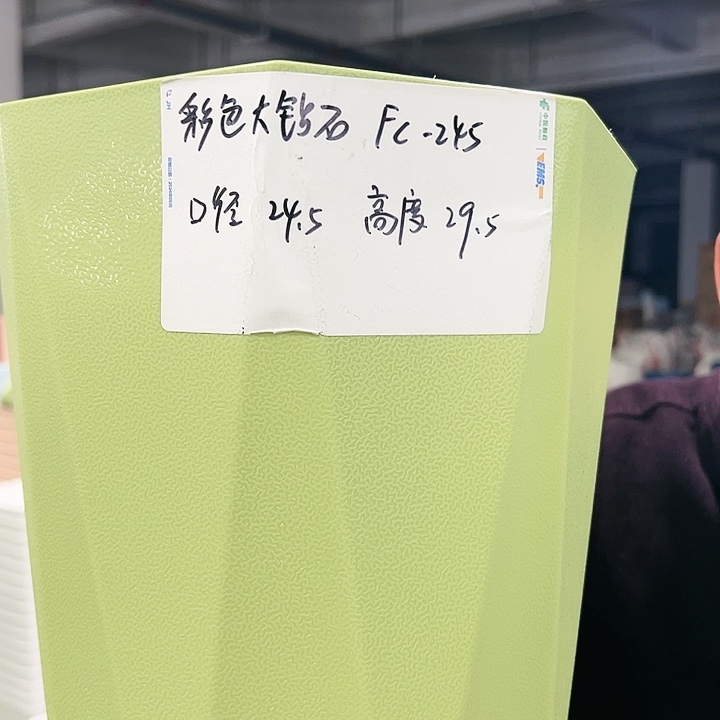 彩色大钻石 FC-245
口径 24.5 高度 29.5
中国邮政
EMS